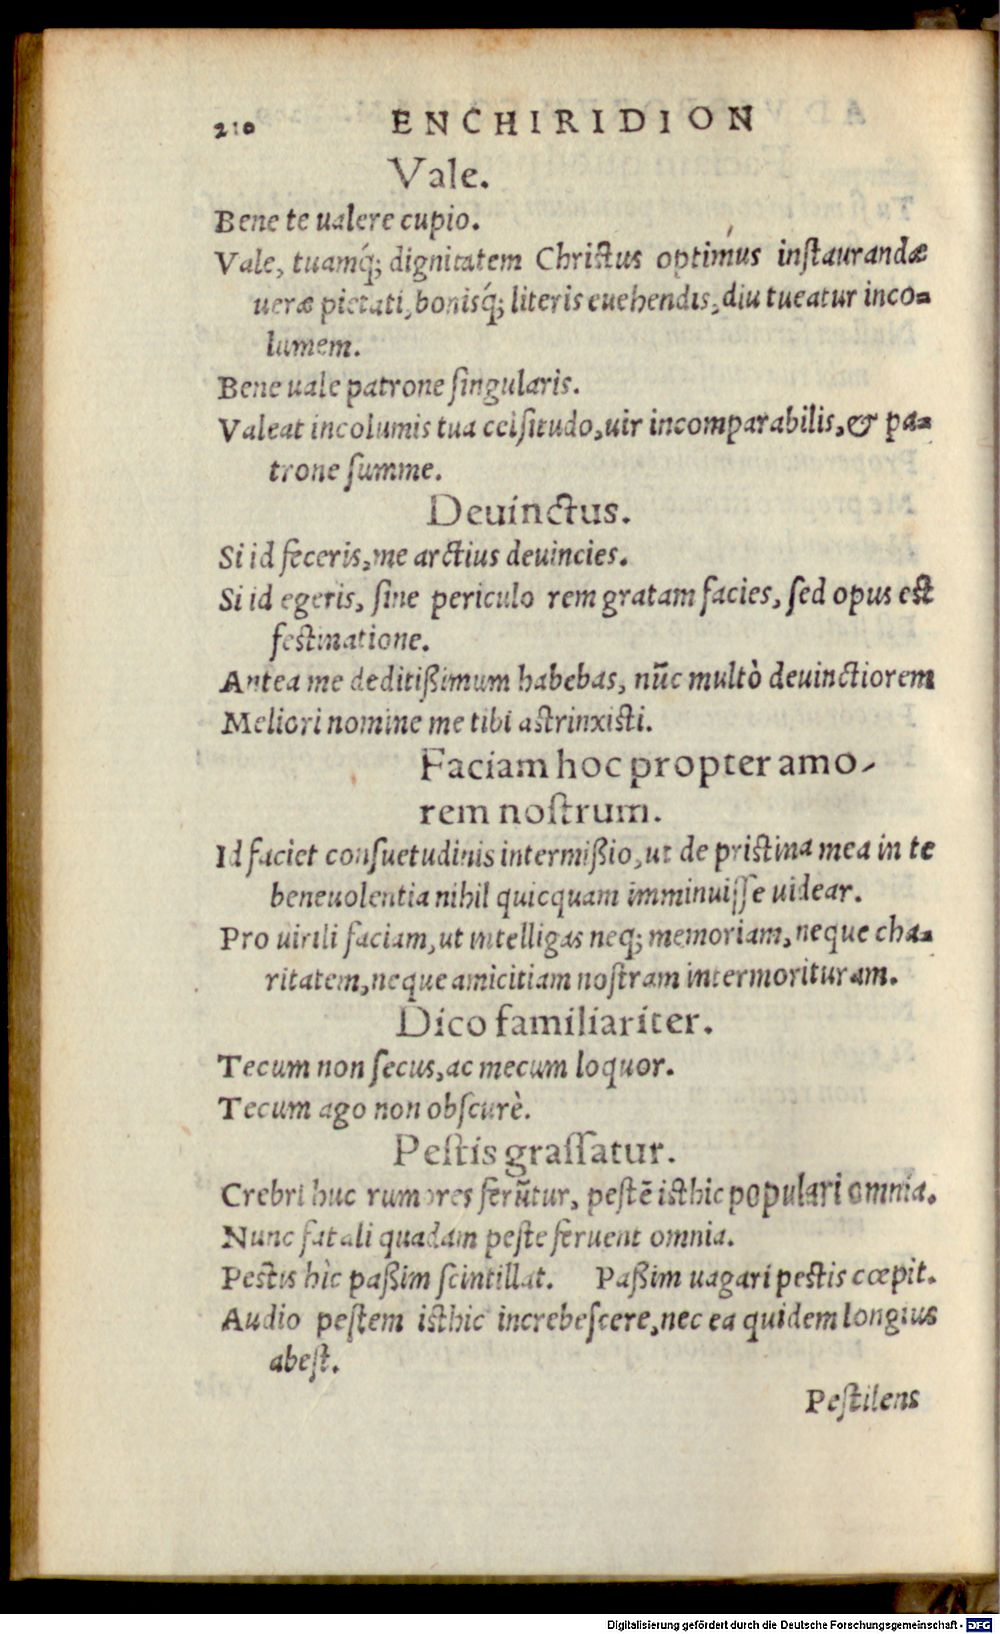 210 ENCHIRIDION
Vale.
Bene te ualere cupio.
Vale, tuamq́; dignitatem Christus optimus instaurandæ
ueræ pietati, bonisq́; literis euehendis, diu tueatur inco-
lumem.
Bene uale patrone singularis.
Valeat incolumis tua celsitudo, uir incomparabilis, & pa-
trone summe.
Deuinctus.
Si id feceris, me arctius deuincies.
Si id egeris, sine periculo rem gratam facies, sed opus est
festinatione.
Antea me deditißimum habebas, nūc multò deuinctiorem
Meliori nomine me tibi astrinxisti.
Faciam hoc propter amo-
rem nostrum.
Id faciet consuetudinis intermißio, ut de pristina mea in te
beneuolentia nihil quicquam imminuisse uidear.
Pro uirili faciam, ut intelligas neq; memoriam, neque cha-
ritatem, neque amicitiam nostram intermorituram.
Dico familiariter.
Tecum non secus, ac mecum loquor.
Tecum ago non obscurè.
Pestis grassatur.
Crebri huc rumores ferūtur, pestē isthic populari omnia.
Nunc fatali quadam peste feruent omnia.
Pestis hìc paßim scintillat. Paßim uagari pestis cœpit.
Audio pestem isthic increbescere, nec ea quidem longius
abest.
Pestilens
Digitalisierung gefördert durch die Deutsche Forschungsgemeinschaft - DFG